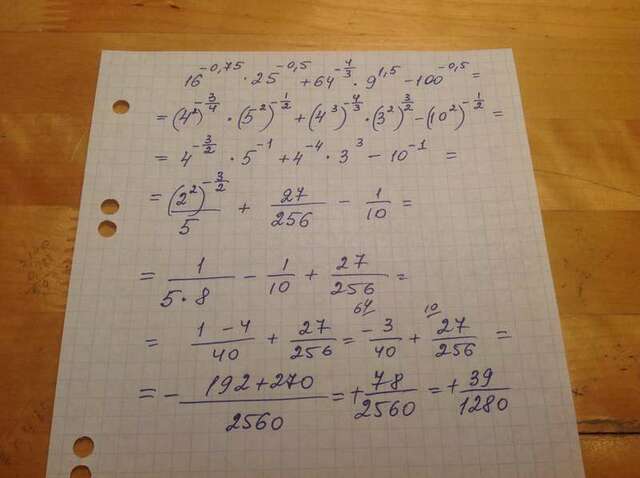 16^{-0,75} · 25^{-0,5} + 64^{-4/3} · 9^{1,5} - 100^{-0,5} =
= (4^2)^{-3/4} · (5^2)^{-1/2} + (4^3)^{-4/3} · (3^2)^{3/2} - (10^2)^{-1/2} =
= 4^{-3/2} · 5^{-1} + 4^{-4} · 3^3 - 10^{-1} =
= (2^2)^{-3/2}/5 + 27/256 - 1/10 =
= 1/(5·8) - 1/10 + 27/256 =
= (1 - 4)/40 + 27/256 = (-3)/40 ^{64} + 27/256 ^{10} =
= - (192 + 270)/2560 = + 78/2560 = + 39/1280